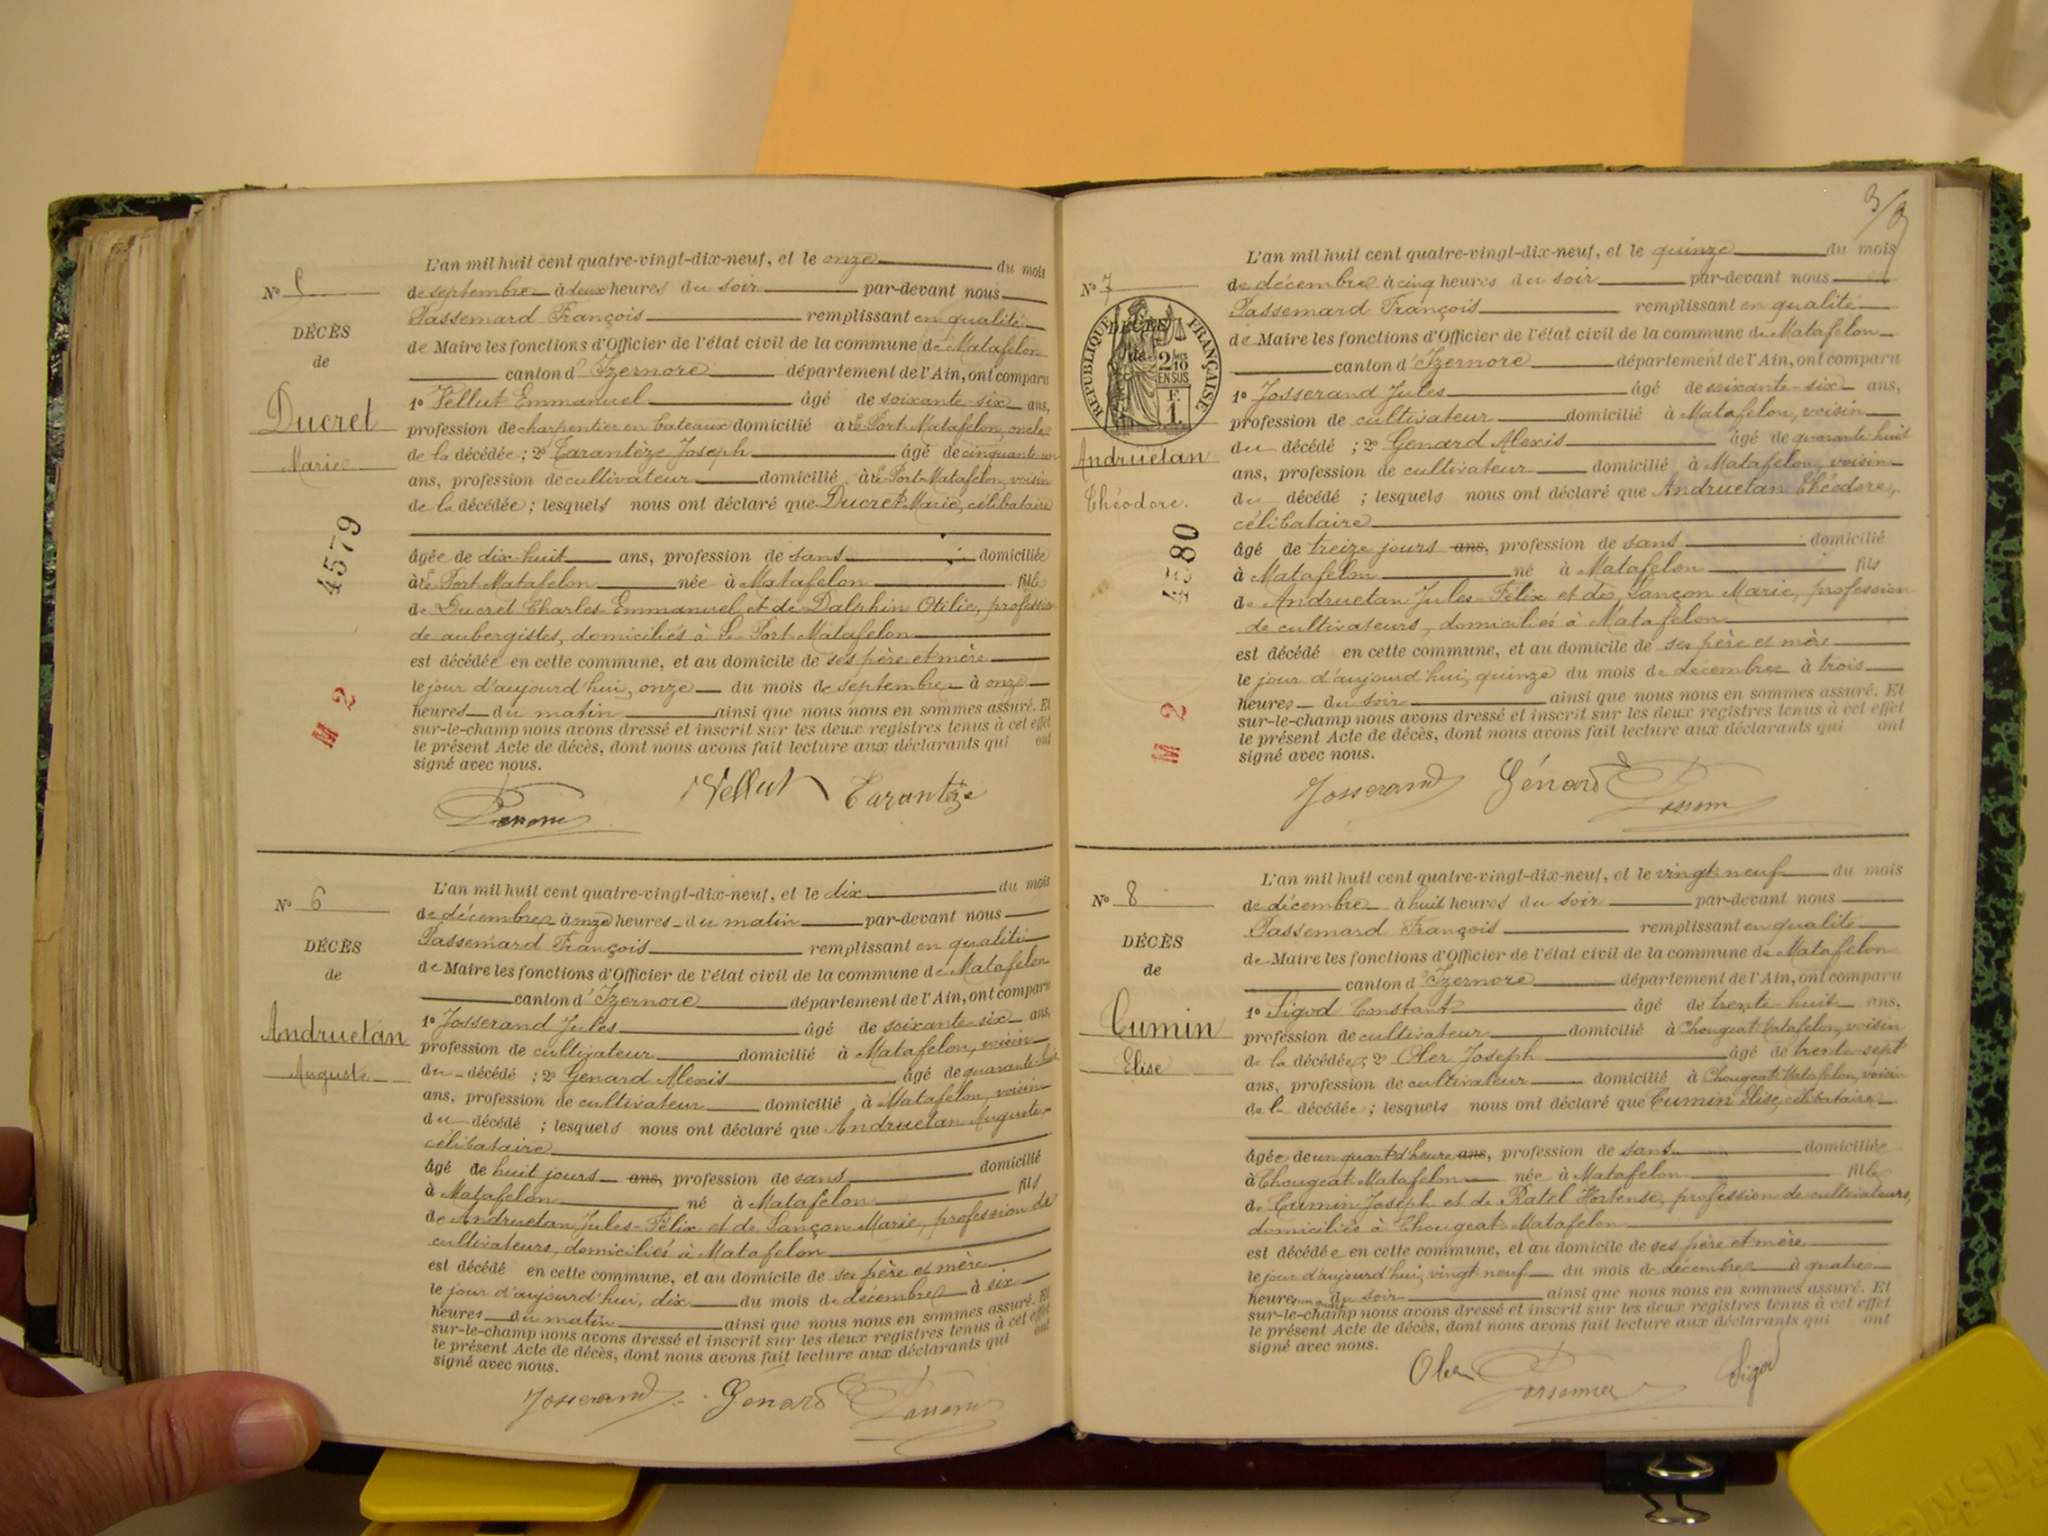 L'an mil huit cent quatre-vingt-dix-neuf, et le onze du mois
de septembre à deux heures du soir par-devant nous
Nº 5
Passemard François remplissant en qualité
DÉCÈS
de Maire les fonctions d'Officier de l'état civil de la commune de Matafelon
de
canton d'Izernore département de l'Ain, ont comparu
1º Vellut Emmanuel âgé de soixante-six ans,
Ducret
profession de charpentier en bateaux domicilié à le Port-Matafelon, oncle
Marie
de la décédée ; 2º Tarantèze Joseph âgé de cinquante-un
ans, profession de cultivateur domicilié à le Port-Matafelon, voisin
de la décédée ; lesquels nous ont déclaré que Ducret Marie, célibataire
4579
âgée de dix-huit ans, profession de sans domiciliée
à le Port-Matafelon née à Matafelon fille
de Ducret Charles Emmanuel et de Dalphin Otilie, profession
de aubergistes, domiciliés à Le Port-Matafelon
est décédée en cette commune, et au domicile de ses père et mère
le jour d'aujourd'hui, onze du mois de septembre à onze
M 2
heures du matin ainsi que nous nous en sommes assuré. Et
sur-le-champ nous avons dressé et inscrit sur les deux registres tenus à cet effet
le présent Acte de décès, dont nous avons fait lecture aux déclarants qui ont
signé avec nous.
Vellut Tarantèze
L'an mil huit cent quatre-vingt-dix-neuf, et le dix du mois
Nº 6
de décembre à onze heures du matin par-devant nous
Passemard François remplissant en qualité
DÉCÈS
de Maire les fonctions d'Officier de l'état civil de la commune de Matafelon
de
canton d'Izernore département de l'Ain, ont comparu
1º Josserand Jules âgé de soixante-six ans,
Andruetan
profession de cultivateur domicilié à Matafelon, voisin
Auguste
du décédé ; 2º Genard Alexis âgé de quarante-huit
ans, profession de cultivateur domicilié à Matafelon, voisin
du décédé ; lesquels nous ont déclaré que Andruetan Auguste
célibataire
âgé de huit jours ans, profession de sans domicilié
à Matafelon né à Matafelon fils
de Andruetan Jules-Félix et de Lançon Marie, profession de
cultivateurs, domiciliés à Matafelon
est décédé en cette commune, et au domicile de ses père et mère
le jour d'aujourd'hui, dix du mois de décembre à six
heures du matin ainsi que nous nous en sommes assuré. Et
sur-le-champ nous avons dressé et inscrit sur les deux registres tenus à cet effet
le présent Acte de décès, dont nous avons fait lecture aux déclarants qui ont
signé avec nous.
Josserand Genard
3/3
L'an mil huit cent quatre-vingt-dix-neuf, et le quinze du mois
Nº 7
de décembre à cinq heures du soir par-devant nous
Passemard François remplissant en qualité
DÉCÈS
de
RÉPUBLIQUE FRANÇAISE
2/10 EN SUS
F. 1
de Maire les fonctions d'Officier de l'état civil de la commune de Matafelon
canton d'Izernore département de l'Ain, ont comparu
1º Josserand Jules âgé de soixante-six ans,
profession de cultivateur domicilié à Matafelon, voisin
Andruetan
du décédé ; 2º Genard Alexis âgé de quarante-huit
ans, profession de cultivateur domicilié à Matafelon, voisin
Théodore.
du décédé ; lesquels nous ont déclaré que Andruetan Théodore,
célibataire
4580
âgé de treize jours ans, profession de sans domicilié
à Matafelon né à Matafelon fils
de Andruetan Jules-Félix et de Lançon Marie, profession
de cultivateurs, domiciliés à Matafelon
est décédé en cette commune, et au domicile de ses père et mère
le jour d'aujourd'hui, quinze du mois de décembre à trois
M 2
heures du soir ainsi que nous nous en sommes assuré. Et
sur-le-champ nous avons dressé et inscrit sur les deux registres tenus à cet effet
le présent Acte de décès, dont nous avons fait lecture aux déclarants qui ont
signé avec nous.
Josserand Génard
L'an mil huit cent quatre-vingt-dix-neuf, et le vingt-neuf du mois
Nº 8
de décembre à huit heures du soir par-devant nous
Passemard François remplissant en qualité
DÉCÈS
de Maire les fonctions d'Officier de l'état civil de la commune de Matafelon
de
canton d'Izernore département de l'Ain, ont comparu
1º Sigod Constant âgé de trente-huit ans,
Cumin
profession de cultivateur domicilié à Chougeat-Matafelon, voisin
Elise
de la décédée ; 2º Joseph âgé de trente-sept
ans, profession de cultivateur domicilié à Chougeat-Matafelon, voisin
de la décédée ; lesquels nous ont déclaré que Cumin Elise, célibataire
âgée de un quart d'heure ans, profession de sans domiciliée
à Chougeat-Matafelon née à Matafelon fille
de Cumin Joseph et de Ratel Hortense, profession de cultivateurs,
domiciliés à Chougeat-Matafelon
est décédée en cette commune, et au domicile de ses père et mère
le jour d'aujourd'hui, vingt-neuf du mois de décembre à quatre
heures un quart du soir ainsi que nous nous en sommes assuré. Et
sur-le-champ nous avons dressé et inscrit sur les deux registres tenus à cet effet
le présent Acte de décès, dont nous avons fait lecture aux déclarants qui ont
signé avec nous.
Sigod